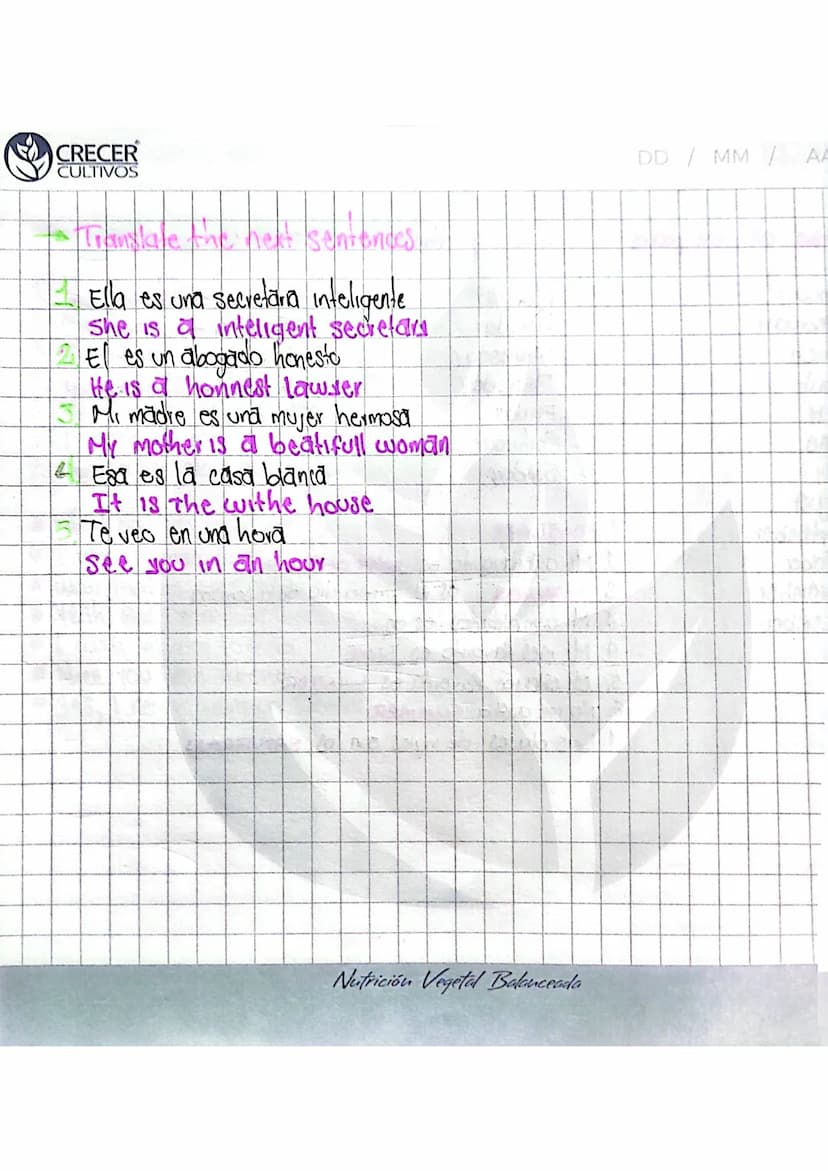 CRECER
CULTIVOS
DD / MM / AA
Translate the next sentences
1. Ella es una secretaria inteligente
She is a inteligent secretary
2. El es un abogado honesto
He is a honnest lawyer
3. Mi madre es una mujer hermosa
My mother is a beatifull woman
4. Esa es la casa blanca
It is the withe house
5. Te veo en una hora
See you in an hour
Nutrición Vegetal Balanceada